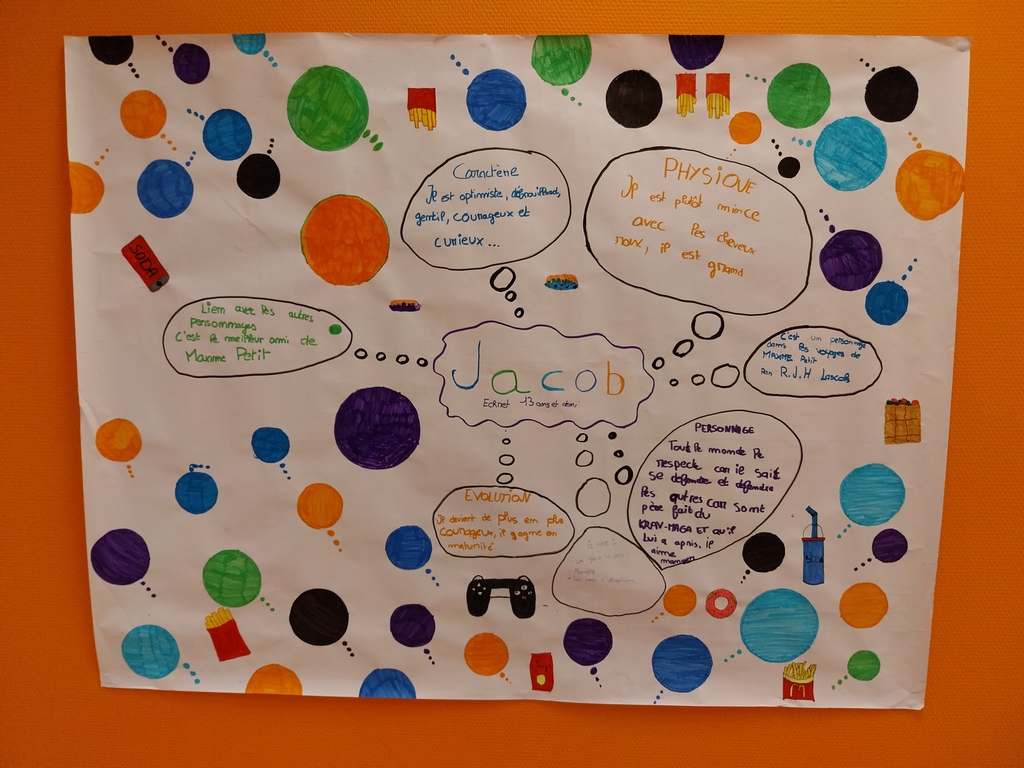 Caractère
Il est optimiste, débrouillard,
gentil, courageux et
curieux...
PHYSIQUE
Il est plutôt mince
avec les cheveux
roux, il est grand
SODA
Lien avec les autres
personnages
C'est le meilleur ami de
Maxime Petit
Jacob
13 ans et demi
C'est un personnage
dans les voyages de
MAXIME Petit
Par R.J.H
PERSONNAGE
Tout le monde le
respecte car il sait
se defendre et défendre
les autres car son
père fait du
KRAV-MAGA ET qu'il
lui a apris. il
aime
manger
EVOLUTION
Il devient de plus en plus
courageux, il gagne en
maturité